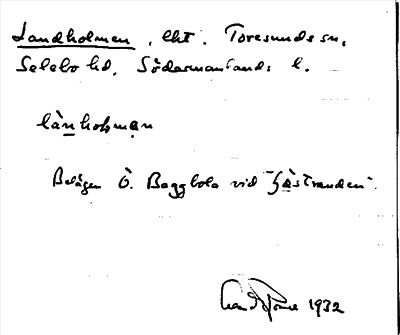 Landholmen, lht. Toresunds sn,
Selebo hd, Södermanlands l.
lànhohmạn
Belägen Ö. Baggbola vid "Gåstranden".
1932